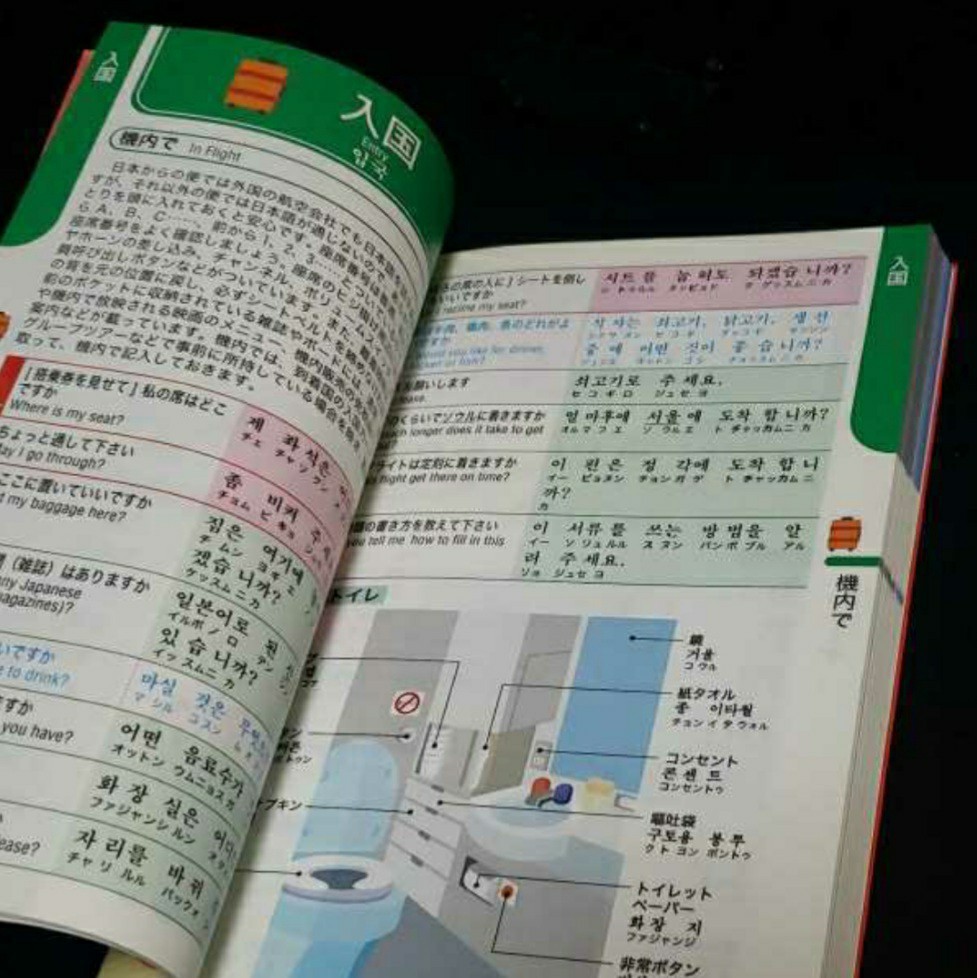 入国
入国
Entry
입국
機内で In Flight
日本からの便では外国の航空会社でも日本語
すが、それ以外の便では日本語が通じないので
とりを頭に入れておくと安心です。座席番号は
ら A、B、C……、前から 1、2、3……
座席番号をよく確認しましょう。座席のヒジ掛け
ヤホーンの差し込み、チャンネル、ボリューム
員呼び出しボタンなどがついています。また
の背を元の位置に戻し、必ずシートベルトを
前のポケットに収納されている雑誌やボードには
や機内で放映される映画のメニュー、機内販売
案内などが載っています。機内では、到着国の入国
グループツアーなどで事前に所持している場合を除
取って、機内で記入しておきます。
[搭乗券を見せて] 私の席はどこ
ですか
Where is my seat?
제 좌석은
チェ チャソクン
ちょっと通して下さい
May I go through?
좀 비켜 주
チョム ビ キョ ジュ
ここに置いていいですか
my baggage here?
짐은 여기에
チ ムン ヨギ エ
겠습니까?
ゲッスムニ カ
(雑誌) はありますか
Japanese
magazines)?
일본어로 된
イルボ ノ ロ テン
있습니까?
イッ スムニ カ
いですか
to drink?
마실 것은 무엇
マ シル コスン
ますか
you have?
어떤 음료수가
オットン ウムニョスガ
화장실은 어디
ファジャンシルン
ease?
자리를 바꿔
チャ リ ルル パックォ
席の人に] シートを倒し
いいですか
recline my seat?
시트를 눕혀도 되겠습니까?
シ トゥルル ヌッピョド テ ゲッスムニ カ
肉、鶏肉、魚のどれがよ
would you like for dinner,
식사는 쇠고기, 닭고기, 생선
중에 어떤 것이 좋습니까?
お願いします
please.
쇠고기로 주세요.
セコギロ ジュセヨ
のくらいでソウルに着きますか
much longer does it take to get
얼마후에 서울에 도착합니까?
オルマフエ ソウルエ トチャッカムニカ
ライトは定刻に着きますか
flight get there on time?
이 편은 정각에 도착합니
イー ピョヌン チョンガゲ トチャッカムニ
까?
カ
類の書き方を教えて下さい
you tell me how to fill in this
이 서류를 쓰는 방법을 알
イー ソリュルル スヌン パンボブル アル
려 주세요.
リョ ジュセヨ
トイレ
鏡
거울
コウル
紙タオル
종이타월
チョンイタウォル
コンセント
콘센트
コンセントゥ
嘔吐袋
구토용 봉투
クトヨン ポントゥ
トイレット
ペーパー
화장지
ファジャンジ
非常ボタン
入国
機内で